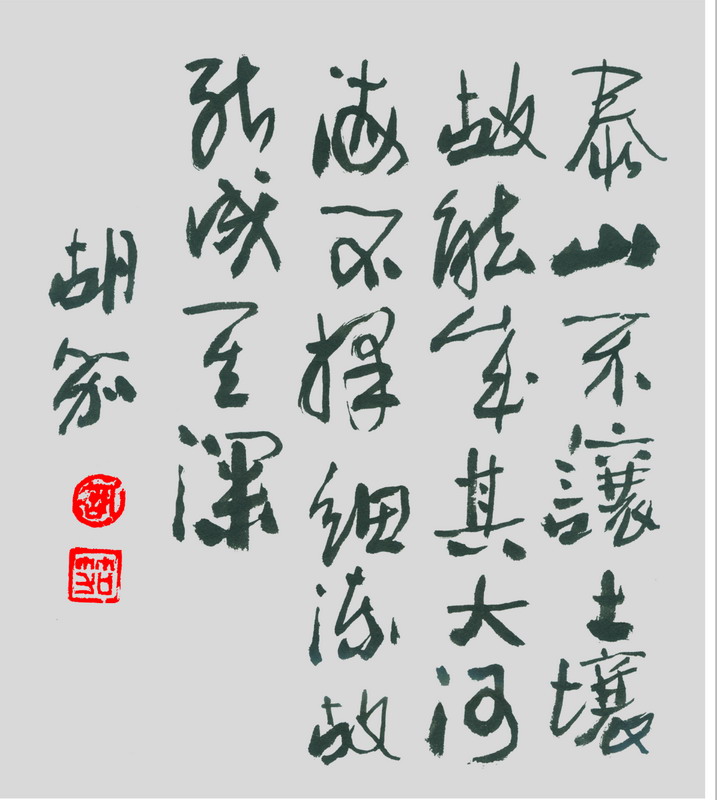 泰山不讓土壤
故能成其大河
海不擇細流故
能成其深
胡笳